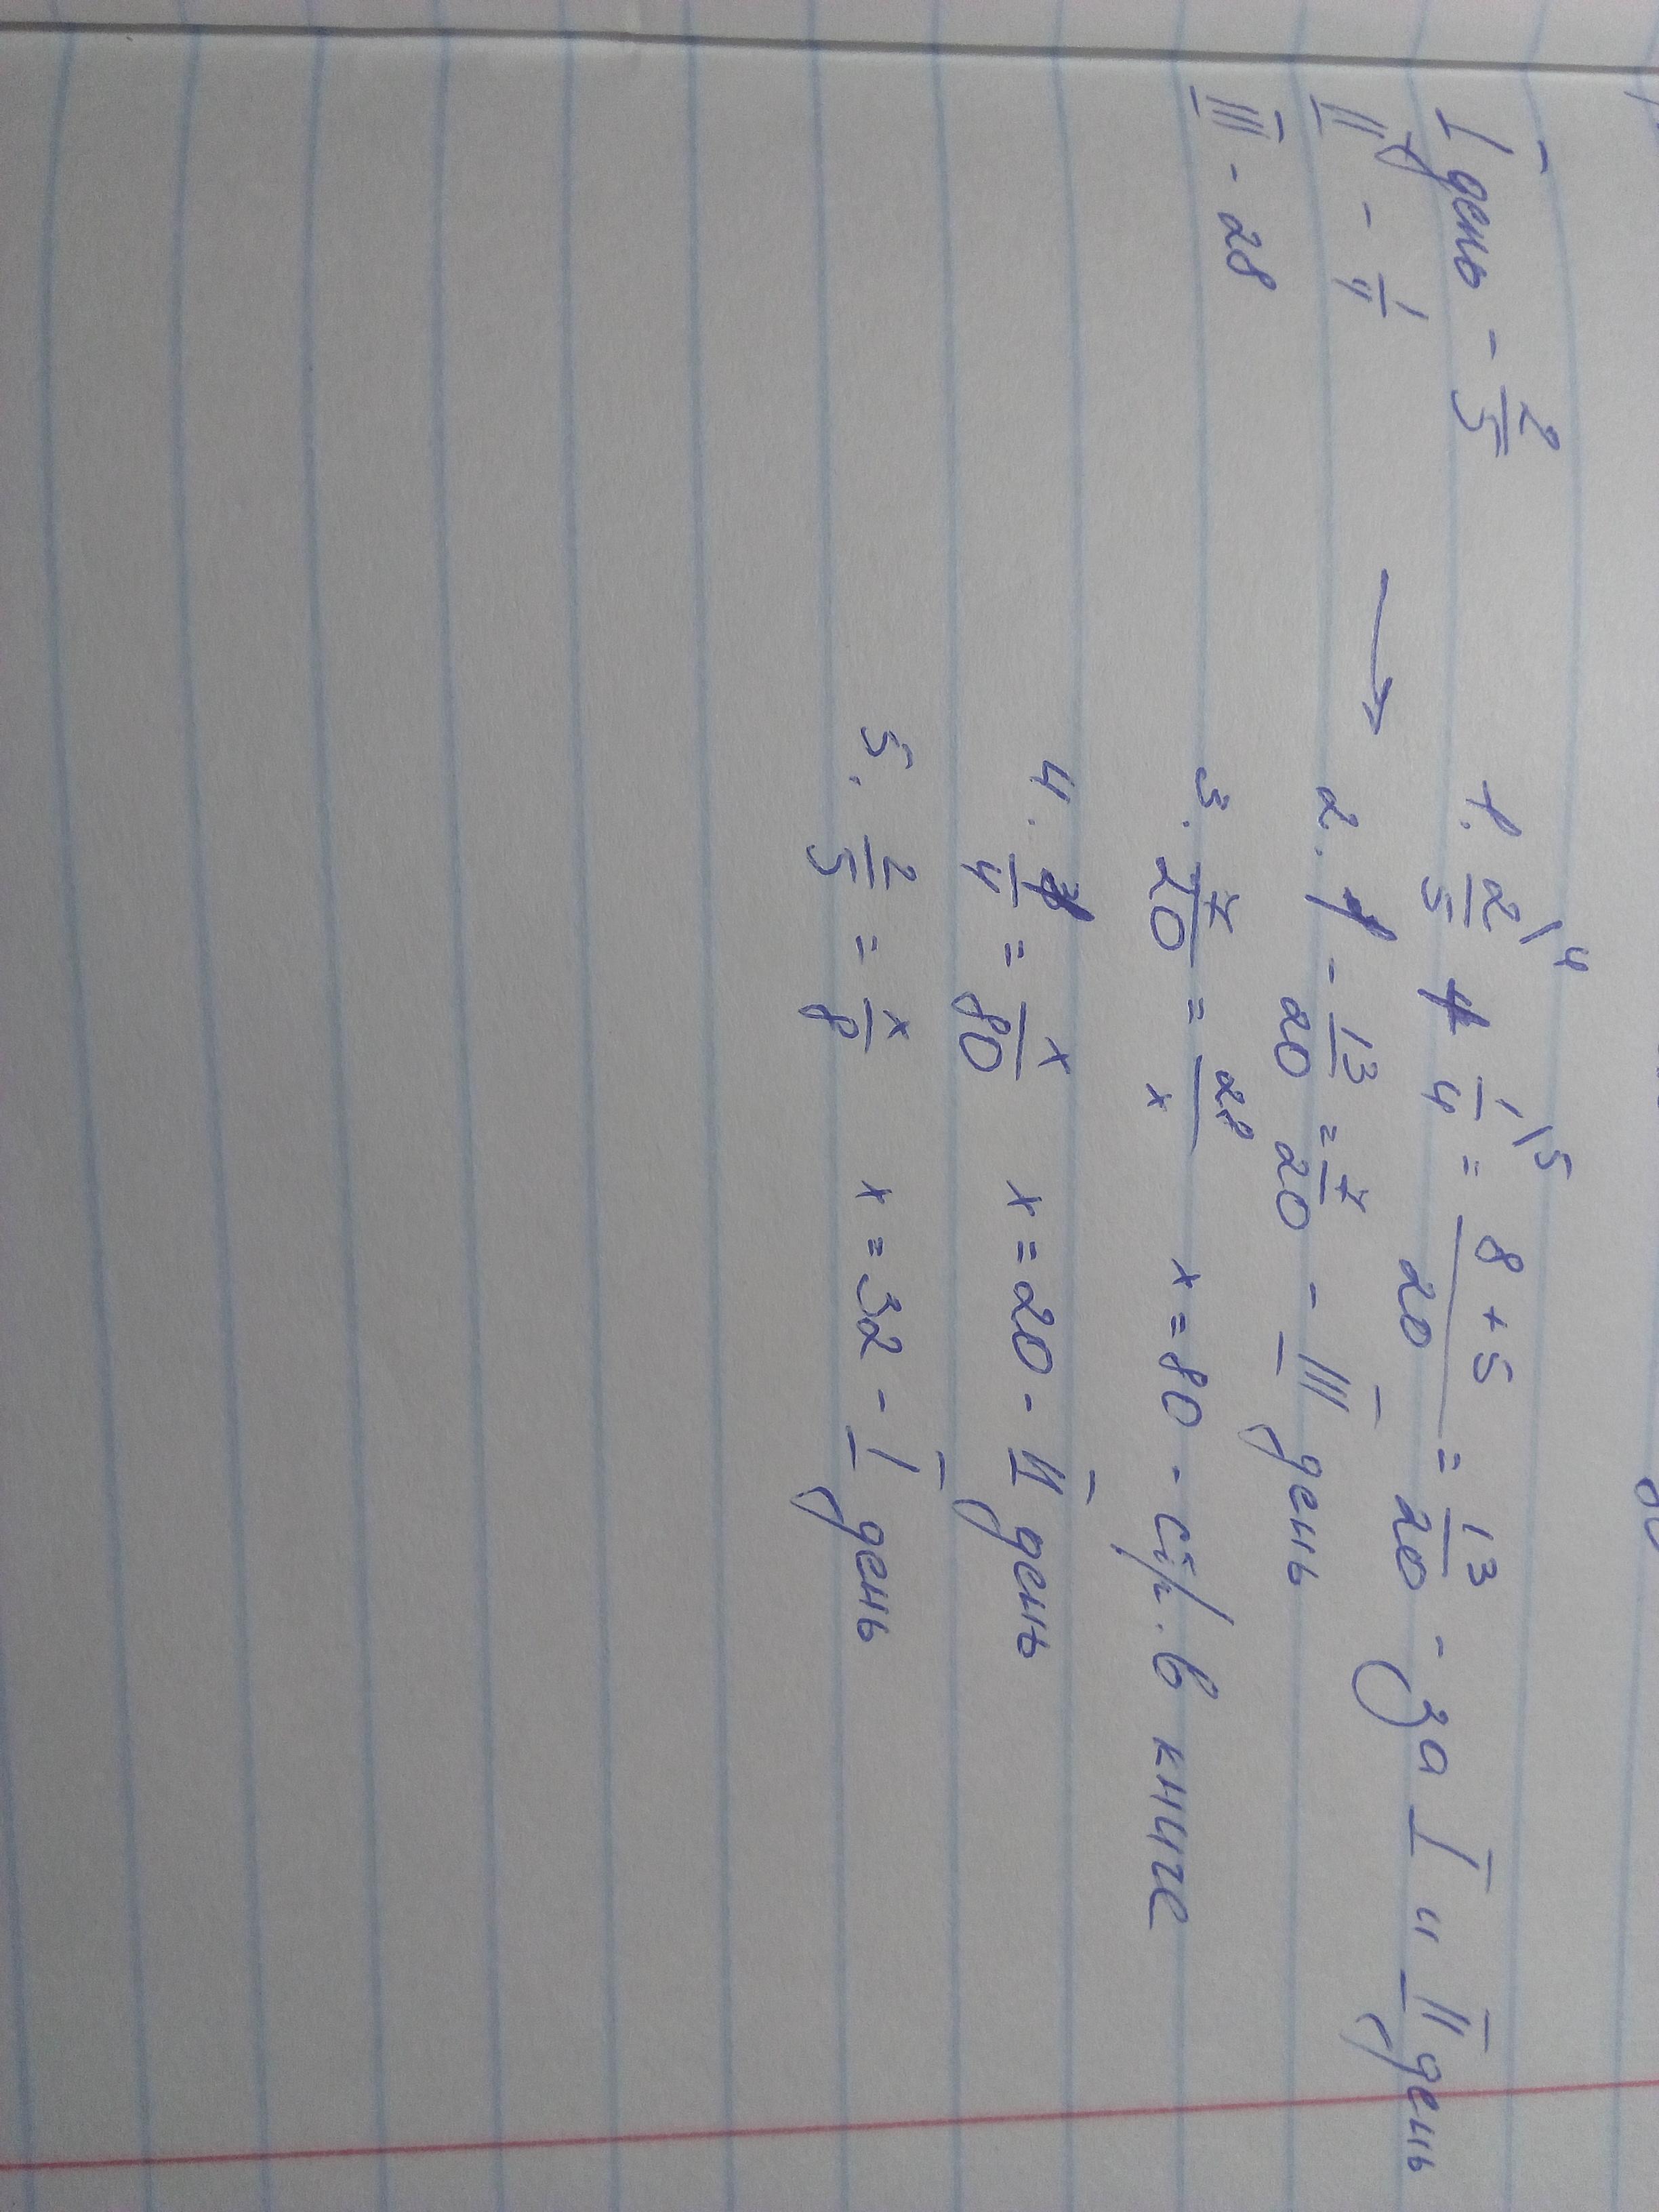 I день - 2/5
II - 1/4
III - 28
→
1. 2/5 \4 + 1/4 \5 = (8+5)/20 = 13/20 - за I и II день
2. 1 - 13/20 = 7/20 - III день
3. 7/20 = 28/x x = 80 - стр. в книге
4. 1/4 = x/80 x = 20 - II день
5. 2/5 = x/8 x = 32 - I день